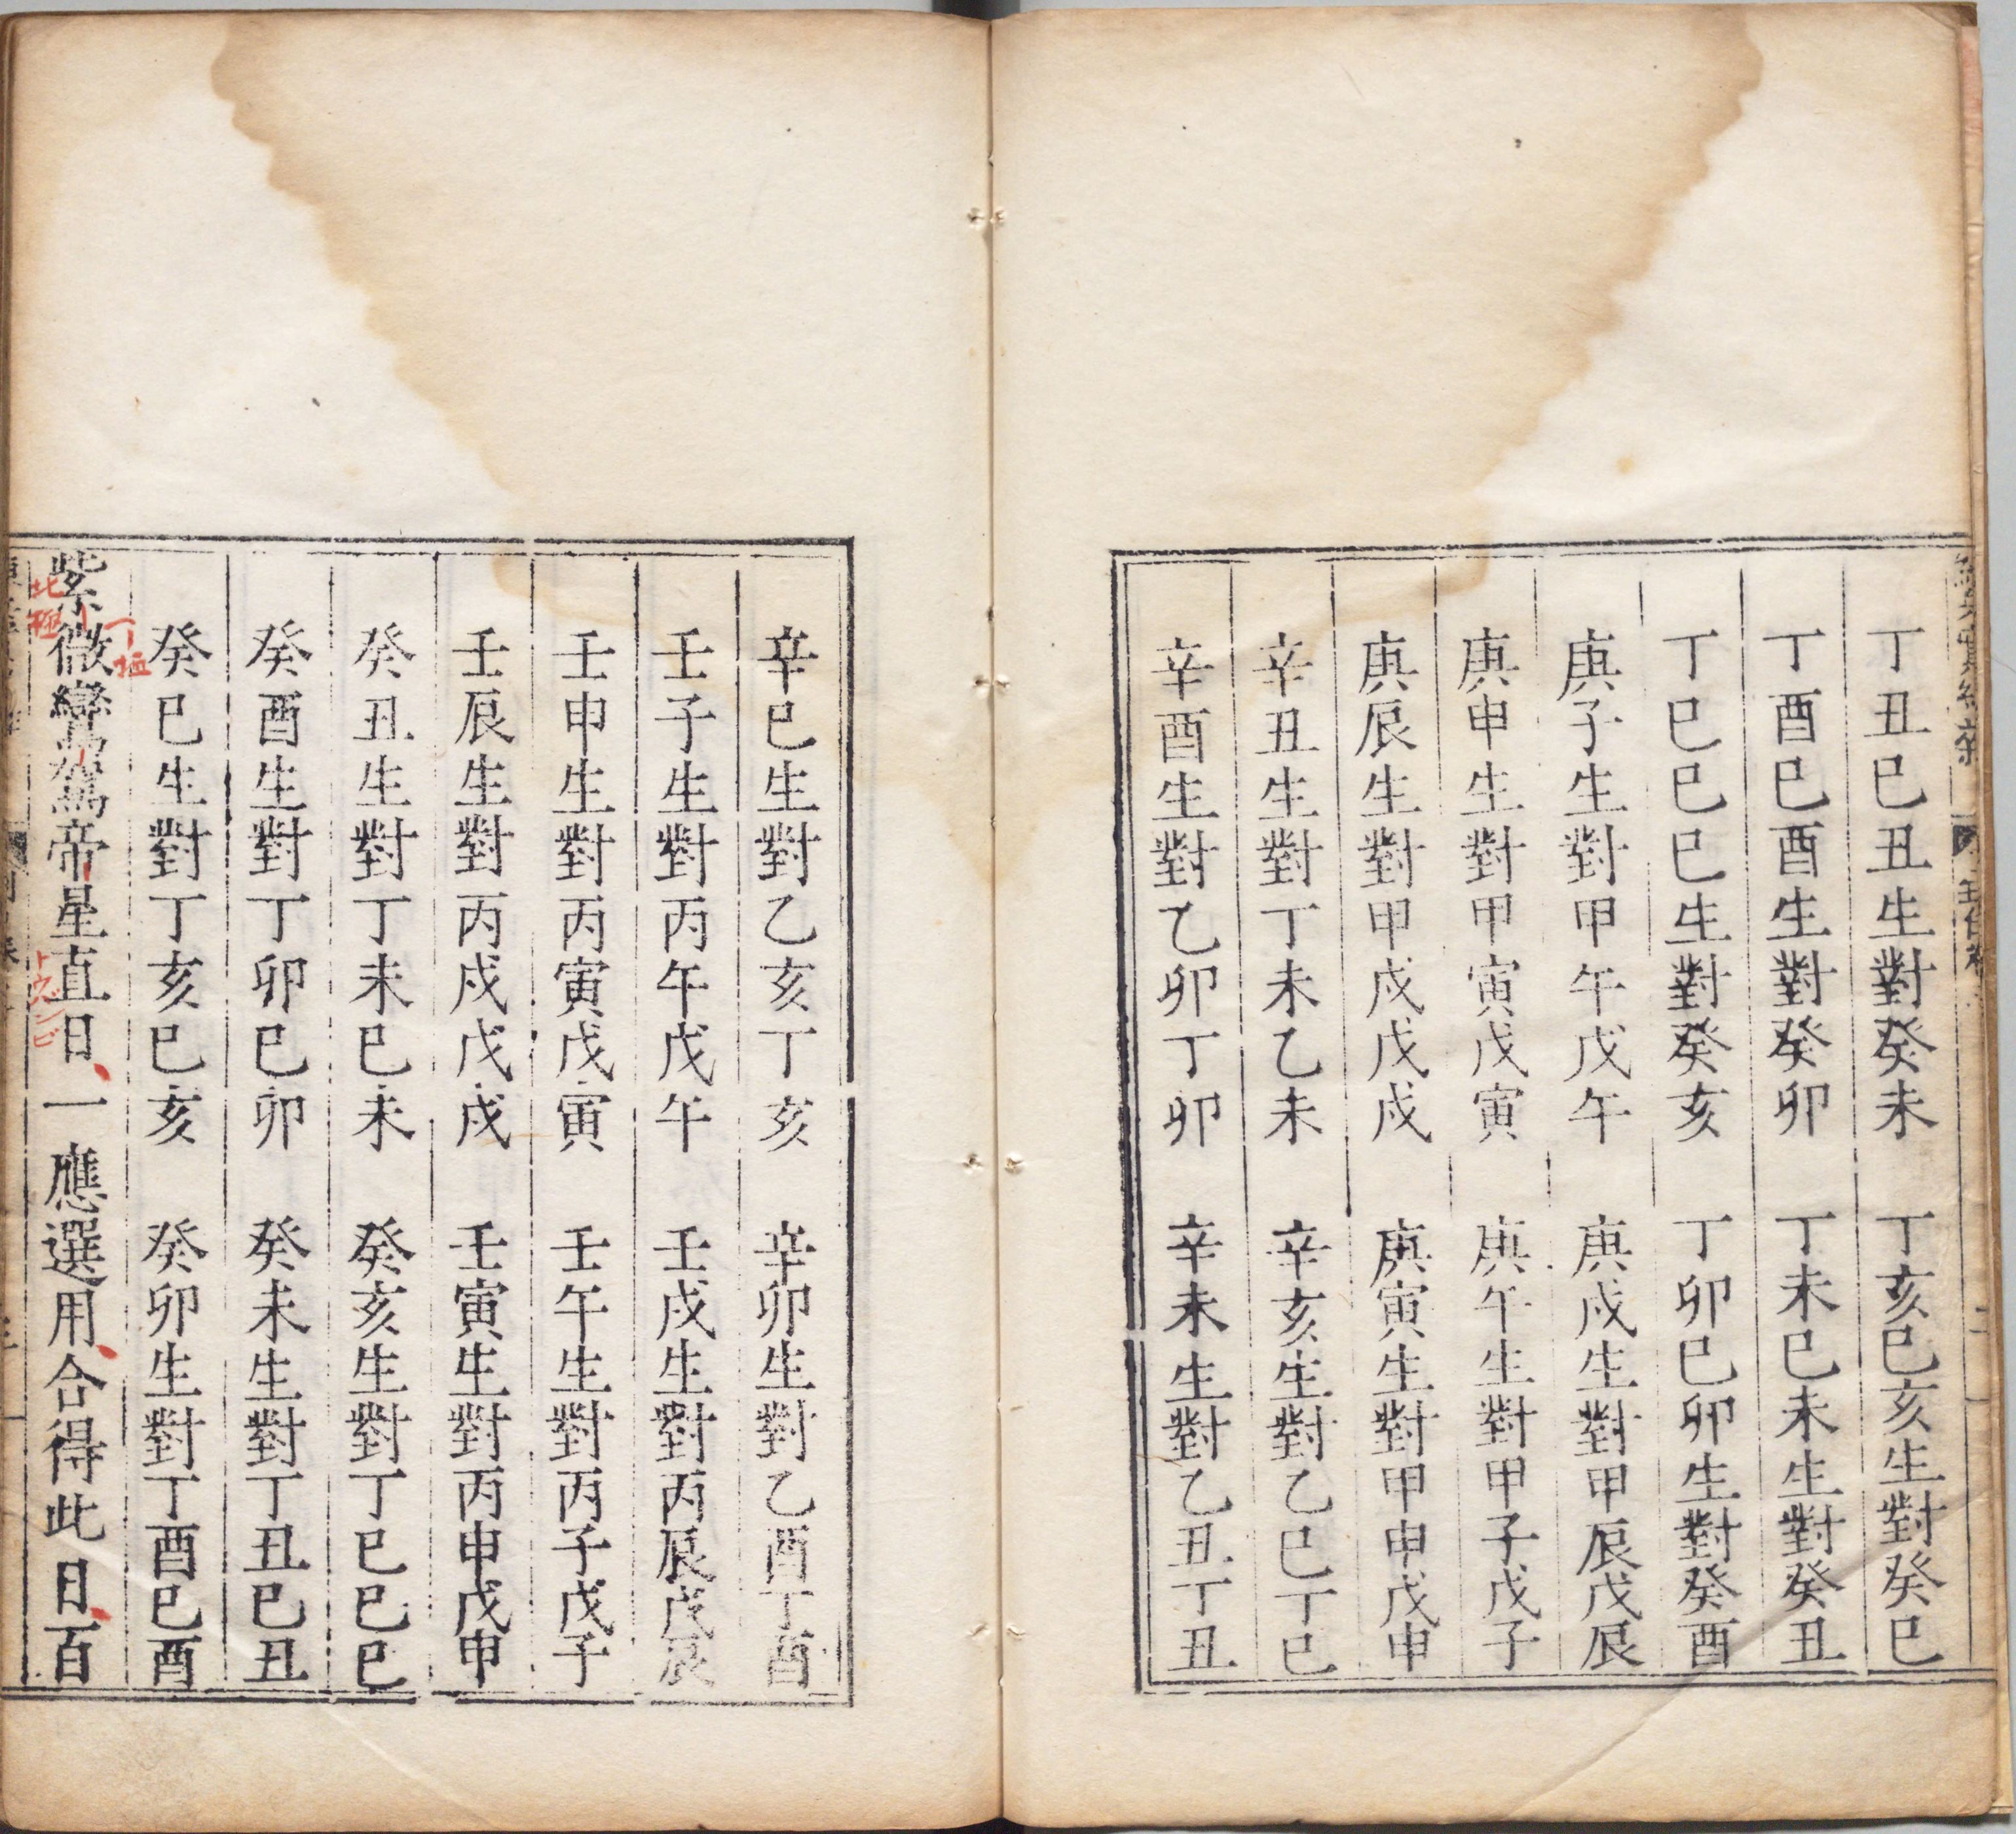 丁丑巳丑生對癸未　丁亥巳亥生對癸巳
丁酉巳酉生對癸卯　丁未巳未生對癸丑
丁巳巳巳生對癸亥　丁卯巳卯生對癸酉
庚子生對甲午戊午　庚戌生對甲辰戊辰
庚申生對甲寅戊寅　庚午生對甲子戊子
庚辰生對甲戌戊戌　庚寅生對甲申戊申
辛丑生對丁未乙未　辛亥生對乙巳丁巳
辛酉生對乙卯丁卯　辛未生對乙丑丁丑
辛巳生對乙亥丁亥　辛卯生對乙酉丁酉
壬子生對丙午戊午　壬戌生對丙辰戊辰
壬申生對丙寅戊寅　壬午生對丙子戊子
壬辰生對丙戌戊戌　壬寅生對丙申戊申
癸丑生對丁未巳未　癸亥生對丁巳巳巳
癸酉生對丁卯巳卯　癸未生對丁丑巳丑
癸巳生對丁亥巳亥　癸卯生對丁酉巳酉
紫微鸞駕帝星直日、一應選用、合得此日、百
北極